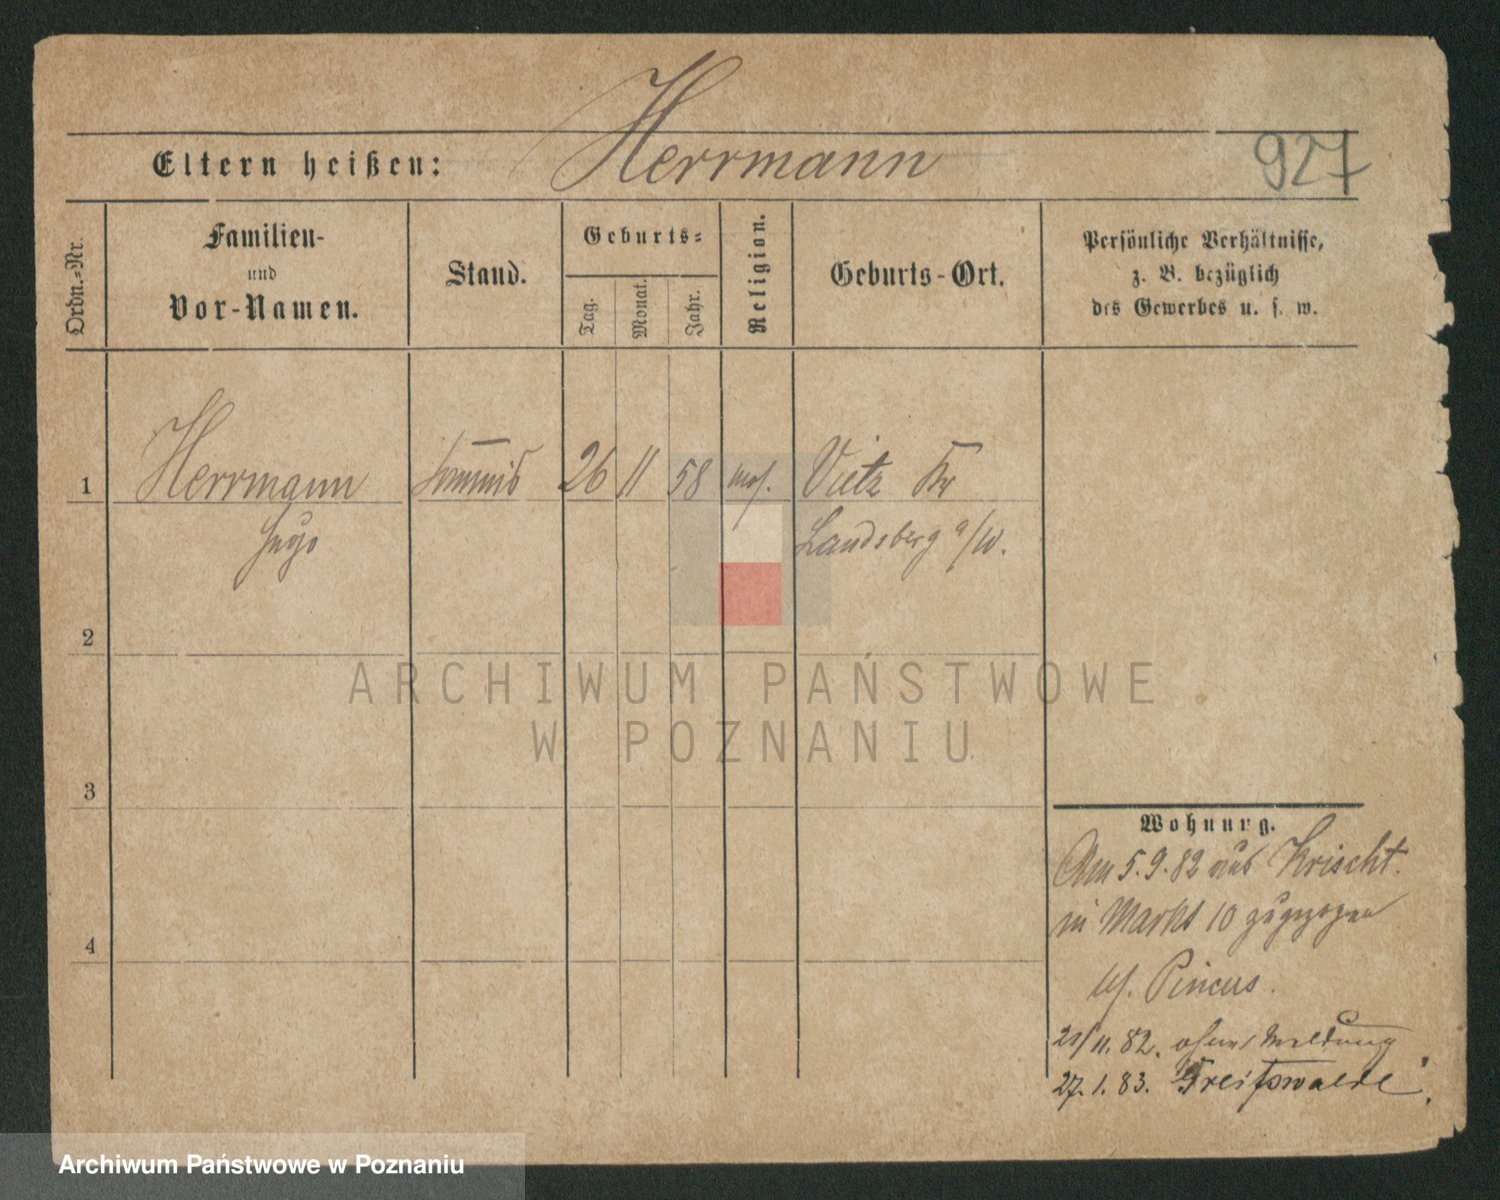 Herrmann
Eltern heißen:
927
Ordn.-Nr.
Familien-
und
Vor-Namen.
Stand.
Geburts-
Tag.
Monat.
Jahr.
Religion.
Geburts-Ort.
Persönliche Verhältnisse,
z. B. bezüglich
des Gewerbes u. s. w.
1 Herrmann Commis 26 11 58 mos. Vietz Kr
Hugo Landsberg a/W.
2
3
4
Wohnung.
Am 5.9.82 aus Krischt.
in Markt 10 zugezogen
bei Pincus.
21/11.82. ohne Meldung
27.1.83. Greifswalde.
ARCHIWUM PAŃSTWOWE
W POZNANIU
Archiwum Państwowe w Poznaniu